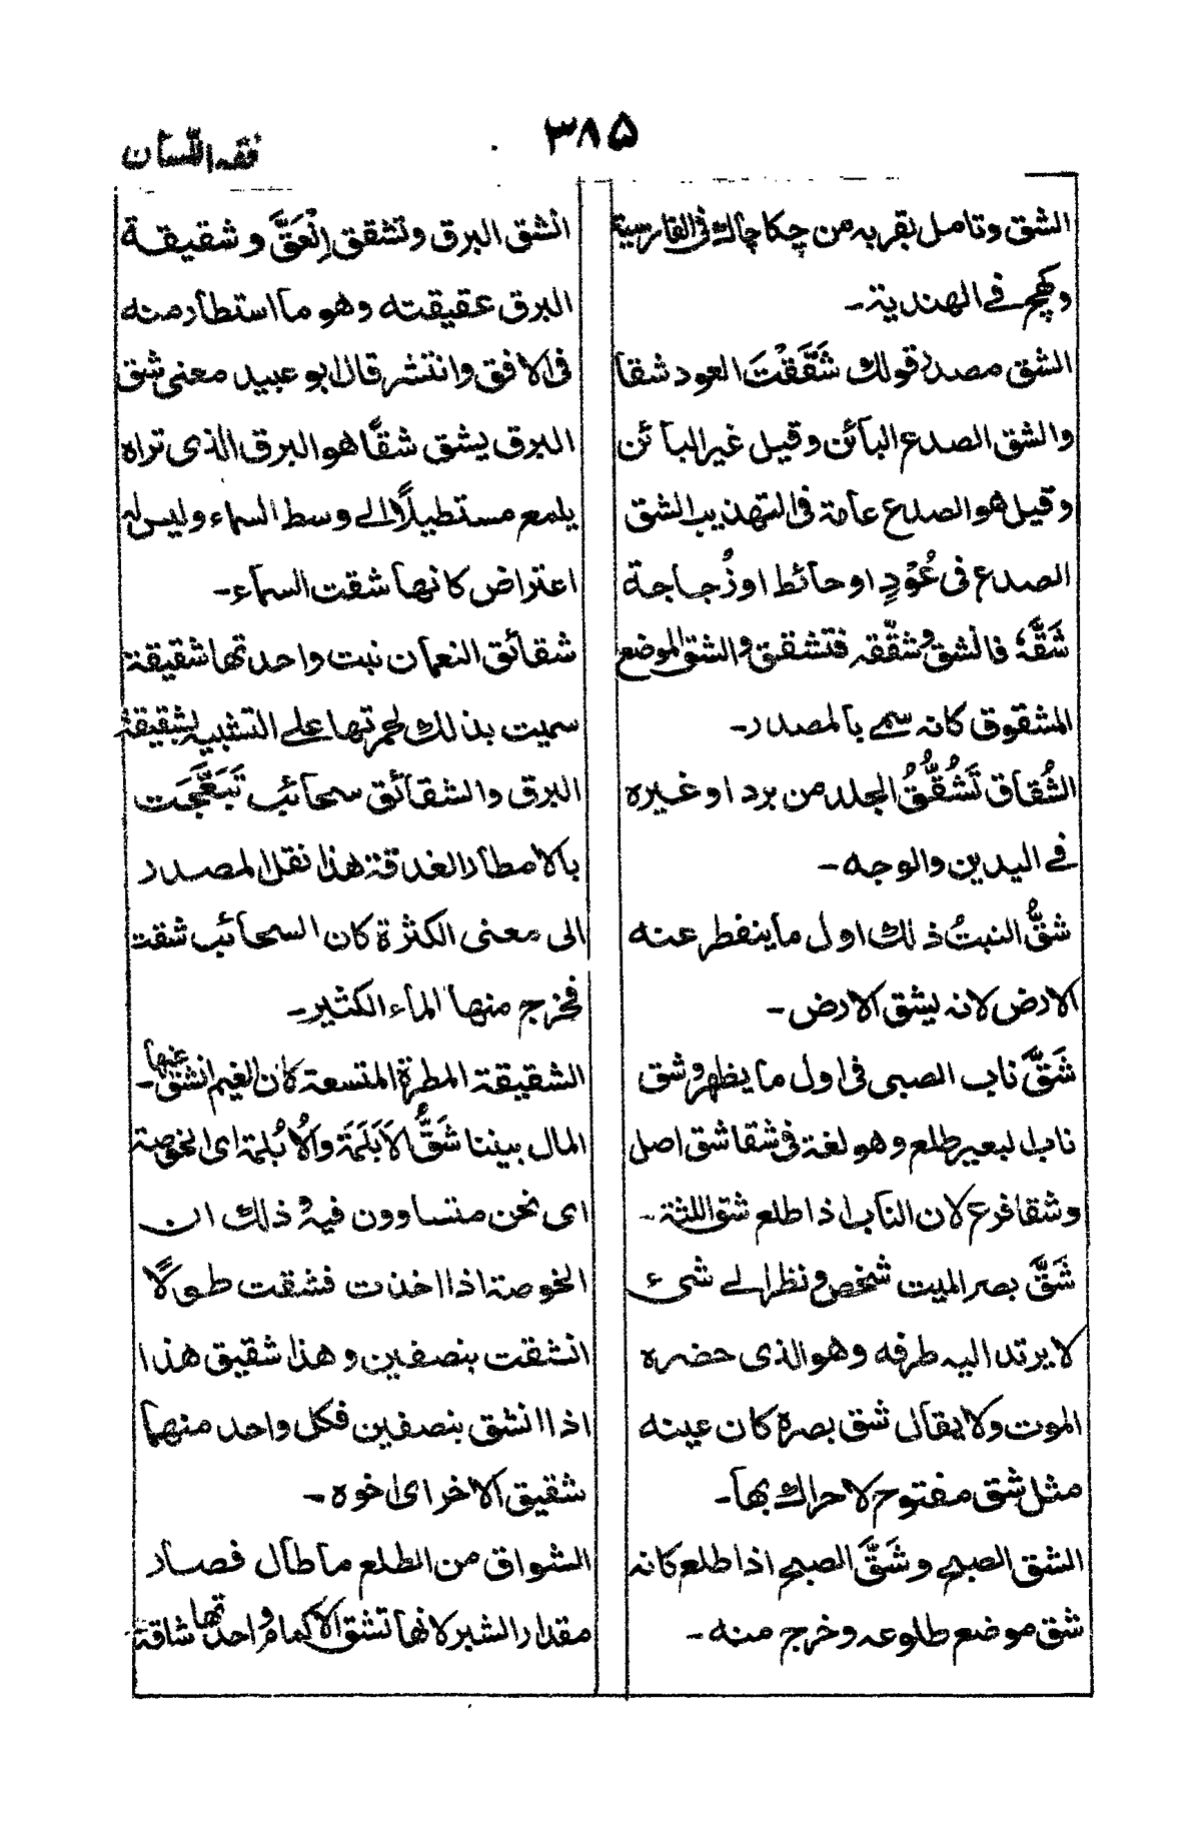 ۳۸۵
فقه اللسان
الشق وتامل بقربه من چکا چاك فی الفارسیة
و کھچم فے الهندیة۔
الشق مصدر قولك شَقَقْتَ العود شقا
والشق الصدع البائن وقیل غیر البائن
وقیل هو الصدع عامة فی التهذیب الشق
الصدع فی عُوْدٍ او حائط او زُجاجة
شَقَّهٗ فانشق وشقّقه فتشقق والشق الموضع
المشقوق کانه سمے بالمصدر۔
الشُقاق تَشُقُّقُ الجلد من برد او غیره
فے الیدین والوجه۔
شقُّ النبتُ ذلك اول ما ینفطر عنه
الارض لانه یشق الارض۔
شَقَّ ناب الصبی فی اول ما یظهر وشق
ناب البعیر طلع وهو لغة فی شقا شق اصل
وشقا فرع لان الناب اذا طلع شق اللثة۔
شَقَّ بصر المیت شخص ونظر الے شیء
لا یرتد الیه طرفه وهو الذی حضره
الموت ولا یقال شق بصره کان عینه
مثل شق مفتوح لا حراك بها۔
الشق الصبح وشَقَّ الصبح اذا طلع کانه
شق موضع طلوعه وخرج منه۔
انشق البرق وتشقق اِنْعَقَّ و شقیقة
البرق عقیقته وهو ما استطار منه
فی الافق وانتشر قال ابو عبید معنی شق
البرق یشق شقًّا هو البرق الذی تراه
یلمع مستطیلًا الے وسط السماء ولیس له
اعتراض کانها شقت السماء۔
شقائق النعمان نبت واحدتها شقیقة
سمیت بذلك لحمرتها علے التشبیه بشقیقة
البرق والشقائق سحائب تَبَعَّجَت
بالامطار الغدقة هذا نقل المصدر
الی معنی الکثرة کان السحائب شقت
فخرج منها الماء الکثیر۔
الشقیقة المطرة المتسعة کان الغیم انشق عنها۔
المال بیننا شَقُّ الاَبَلَمَة والاُبُلمة ای الخوصة
ای نحن متساوون فیه وذلك ان
الخوصة اذا اخذت فشقت طولًا
انشقت بنصفین وهذا شقیق هذا
اذا انشق بنصفین فکل واحد منهما
شقیق الاخر ای اخوه۔
الشواق من الطلع ما طال فصار
مقدار الشبر لانها تشق الاکمام واحدتها شاقة